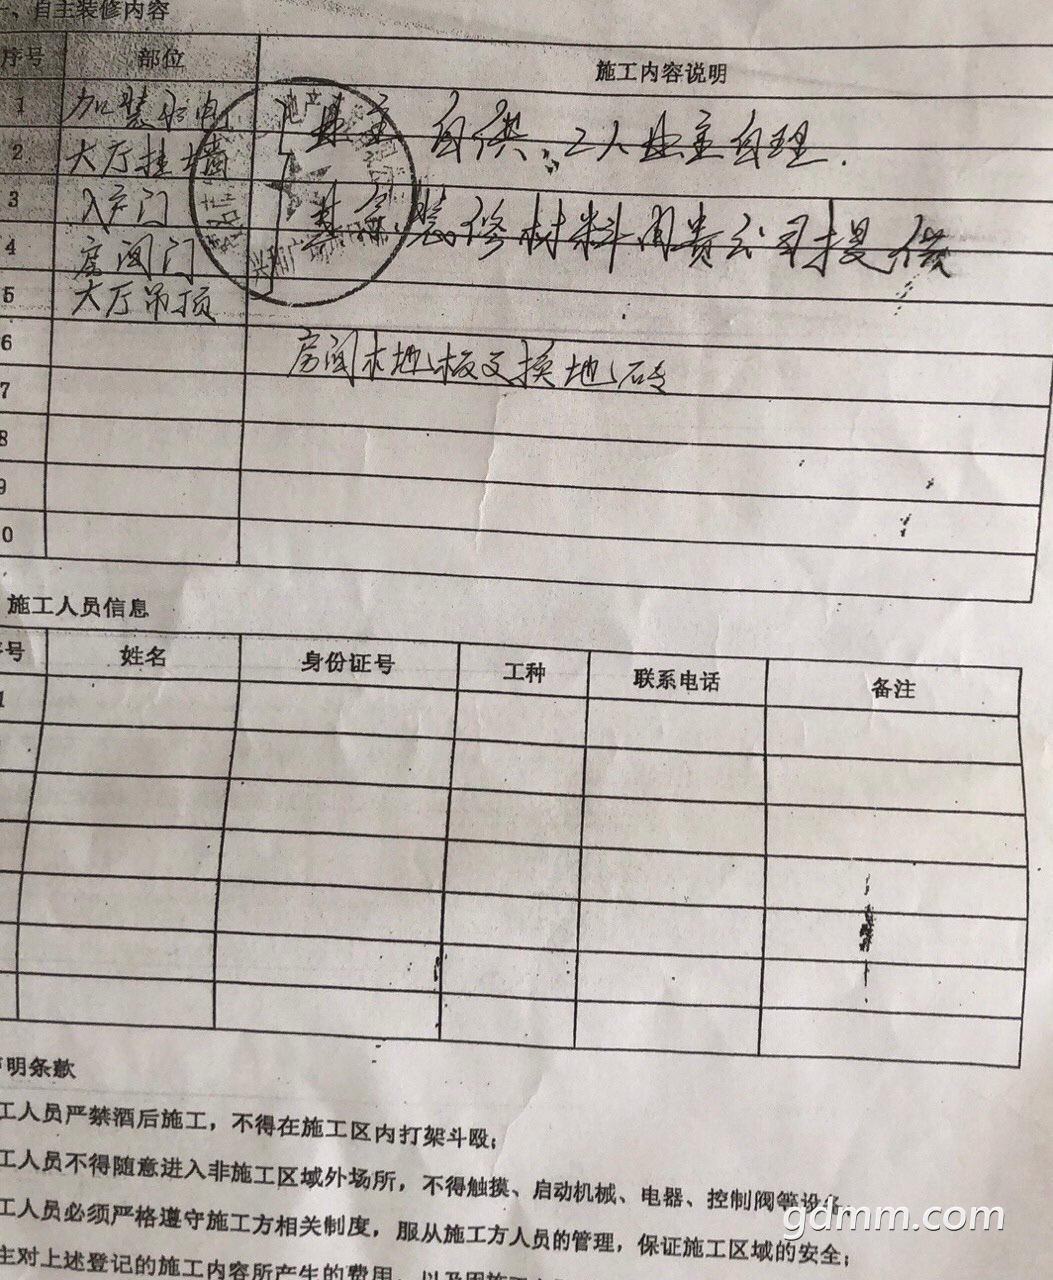 一、自主装修内容
序号 部位 施工内容说明
1 加装水电 业主自供,工人业主自理.
2 大厅挂墙
3 入户门 其余装修材料由贵公司提供
4 房间门
5 大厅吊顶
6 房间木地板更换地砖
7
8
9
0
施工人员信息
序号 姓名 身份证号 工种 联系电话 备注
1
声明条款
工人员严禁酒后施工，不得在施工区内打架斗殴；
工人员不得随意进入非施工区域外场所，不得触摸、启动机械、电器、控制阀等设备
工人员必须严格遵守施工方相关制度，服从施工方人员的管理，保证施工区域的安全；
主对上述登记的施工内容所产生的费用，以及因施工
gdmm.com